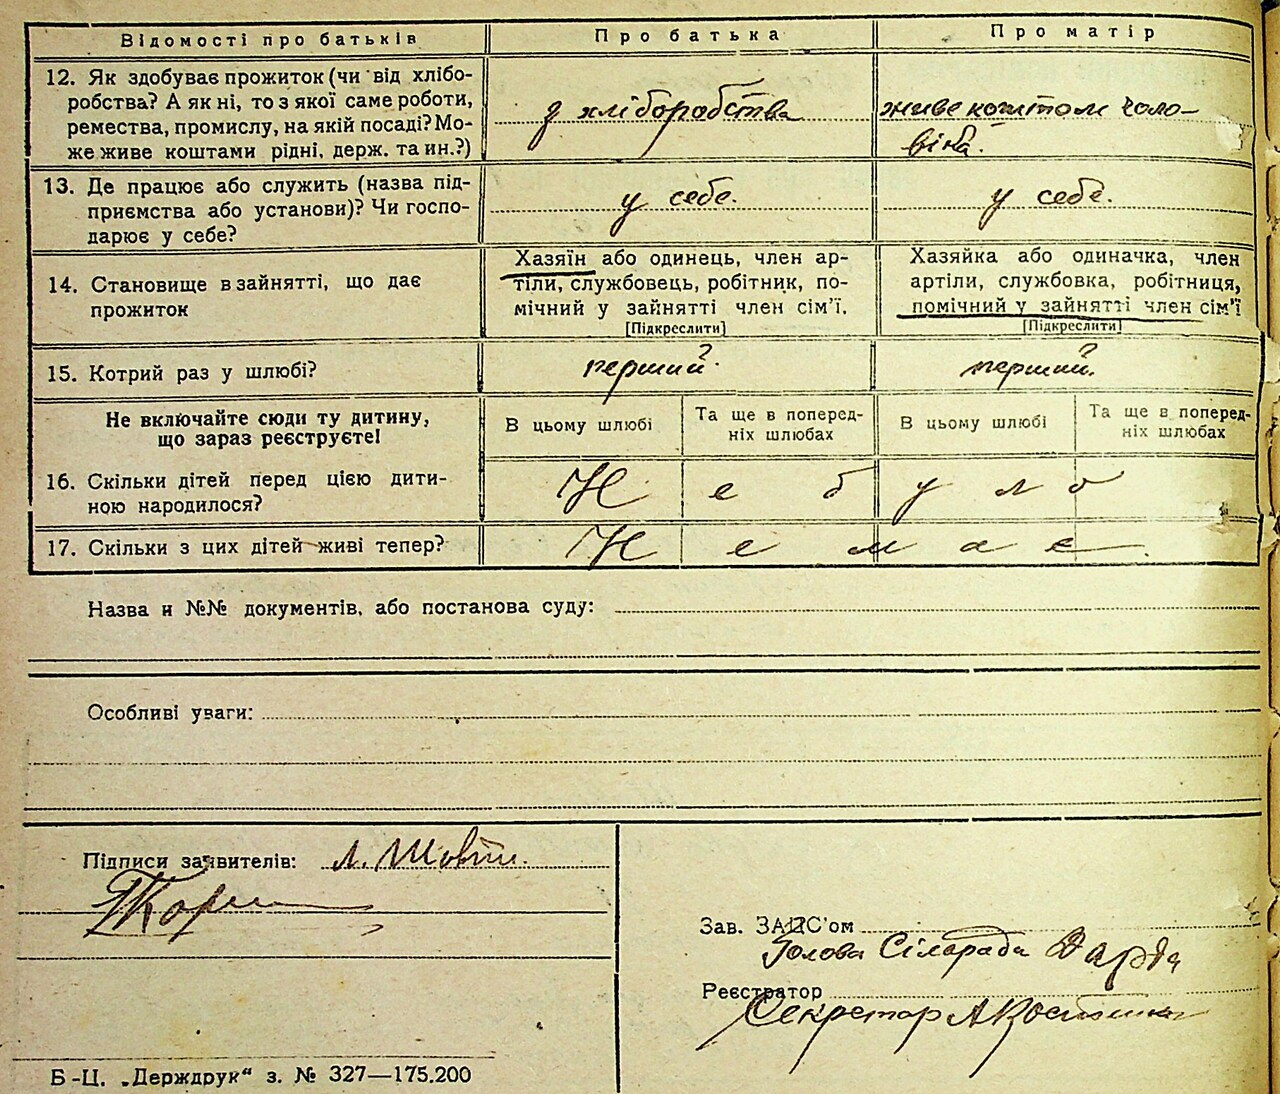 Відомості про батьків
Про батька
Про матір
12. Як здобуває прожиток (чи від хлібо-
робства? А як ні, то з якої саме роботи,
ремества, промислу, на якій посаді? Мо-
же живе коштами рідні, держ. та ин.?)
з хліборобства
живе коштом чоло-
віка.
13. Де працює або служить (назва під-
приємства або установи)? Чи госпо-
дарює у себе?
у себе.
у себе.
14. Становище в зайнятті, що дає
прожиток
Хазяїн або одинець, член ар-
тіли, службовець, робітник, по-
мічний у зайнятті член сім'ї.
[Підкреслити]
Хазяйка або одиначка, член
артіли, службовка, робітниця,
помічний у зайнятті член сім'ї
[Підкреслити]
15. Котрий раз у шлюбі?
перший.
перший.
Не включайте сюди ту дитину,
що зараз реєструєте!
В цьому шлюбі
Та ще в поперед-
ніх шлюбах
В цьому шлюбі
Та ще в поперед-
ніх шлюбах
16. Скільки дітей перед цією дити-
ною народилося?
Не було
17. Скільки з цих дітей живі тепер?
Немає.
Назва и №№ документів, або постанова суду:
Особливі уваги:
Підписи заявителів:
Зав. ЗАПС'ом
Голова Сільради
Реєстратор
Секретар
Б-Ц. „Держдрук“ з. № 327—175.200